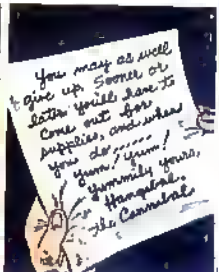 You may as well
give up. Sooner or
later you'll have to
come out for
supplies, and when
you do......
yum! Yum!
Yummily yours,
Hannibal
the Cannibal.